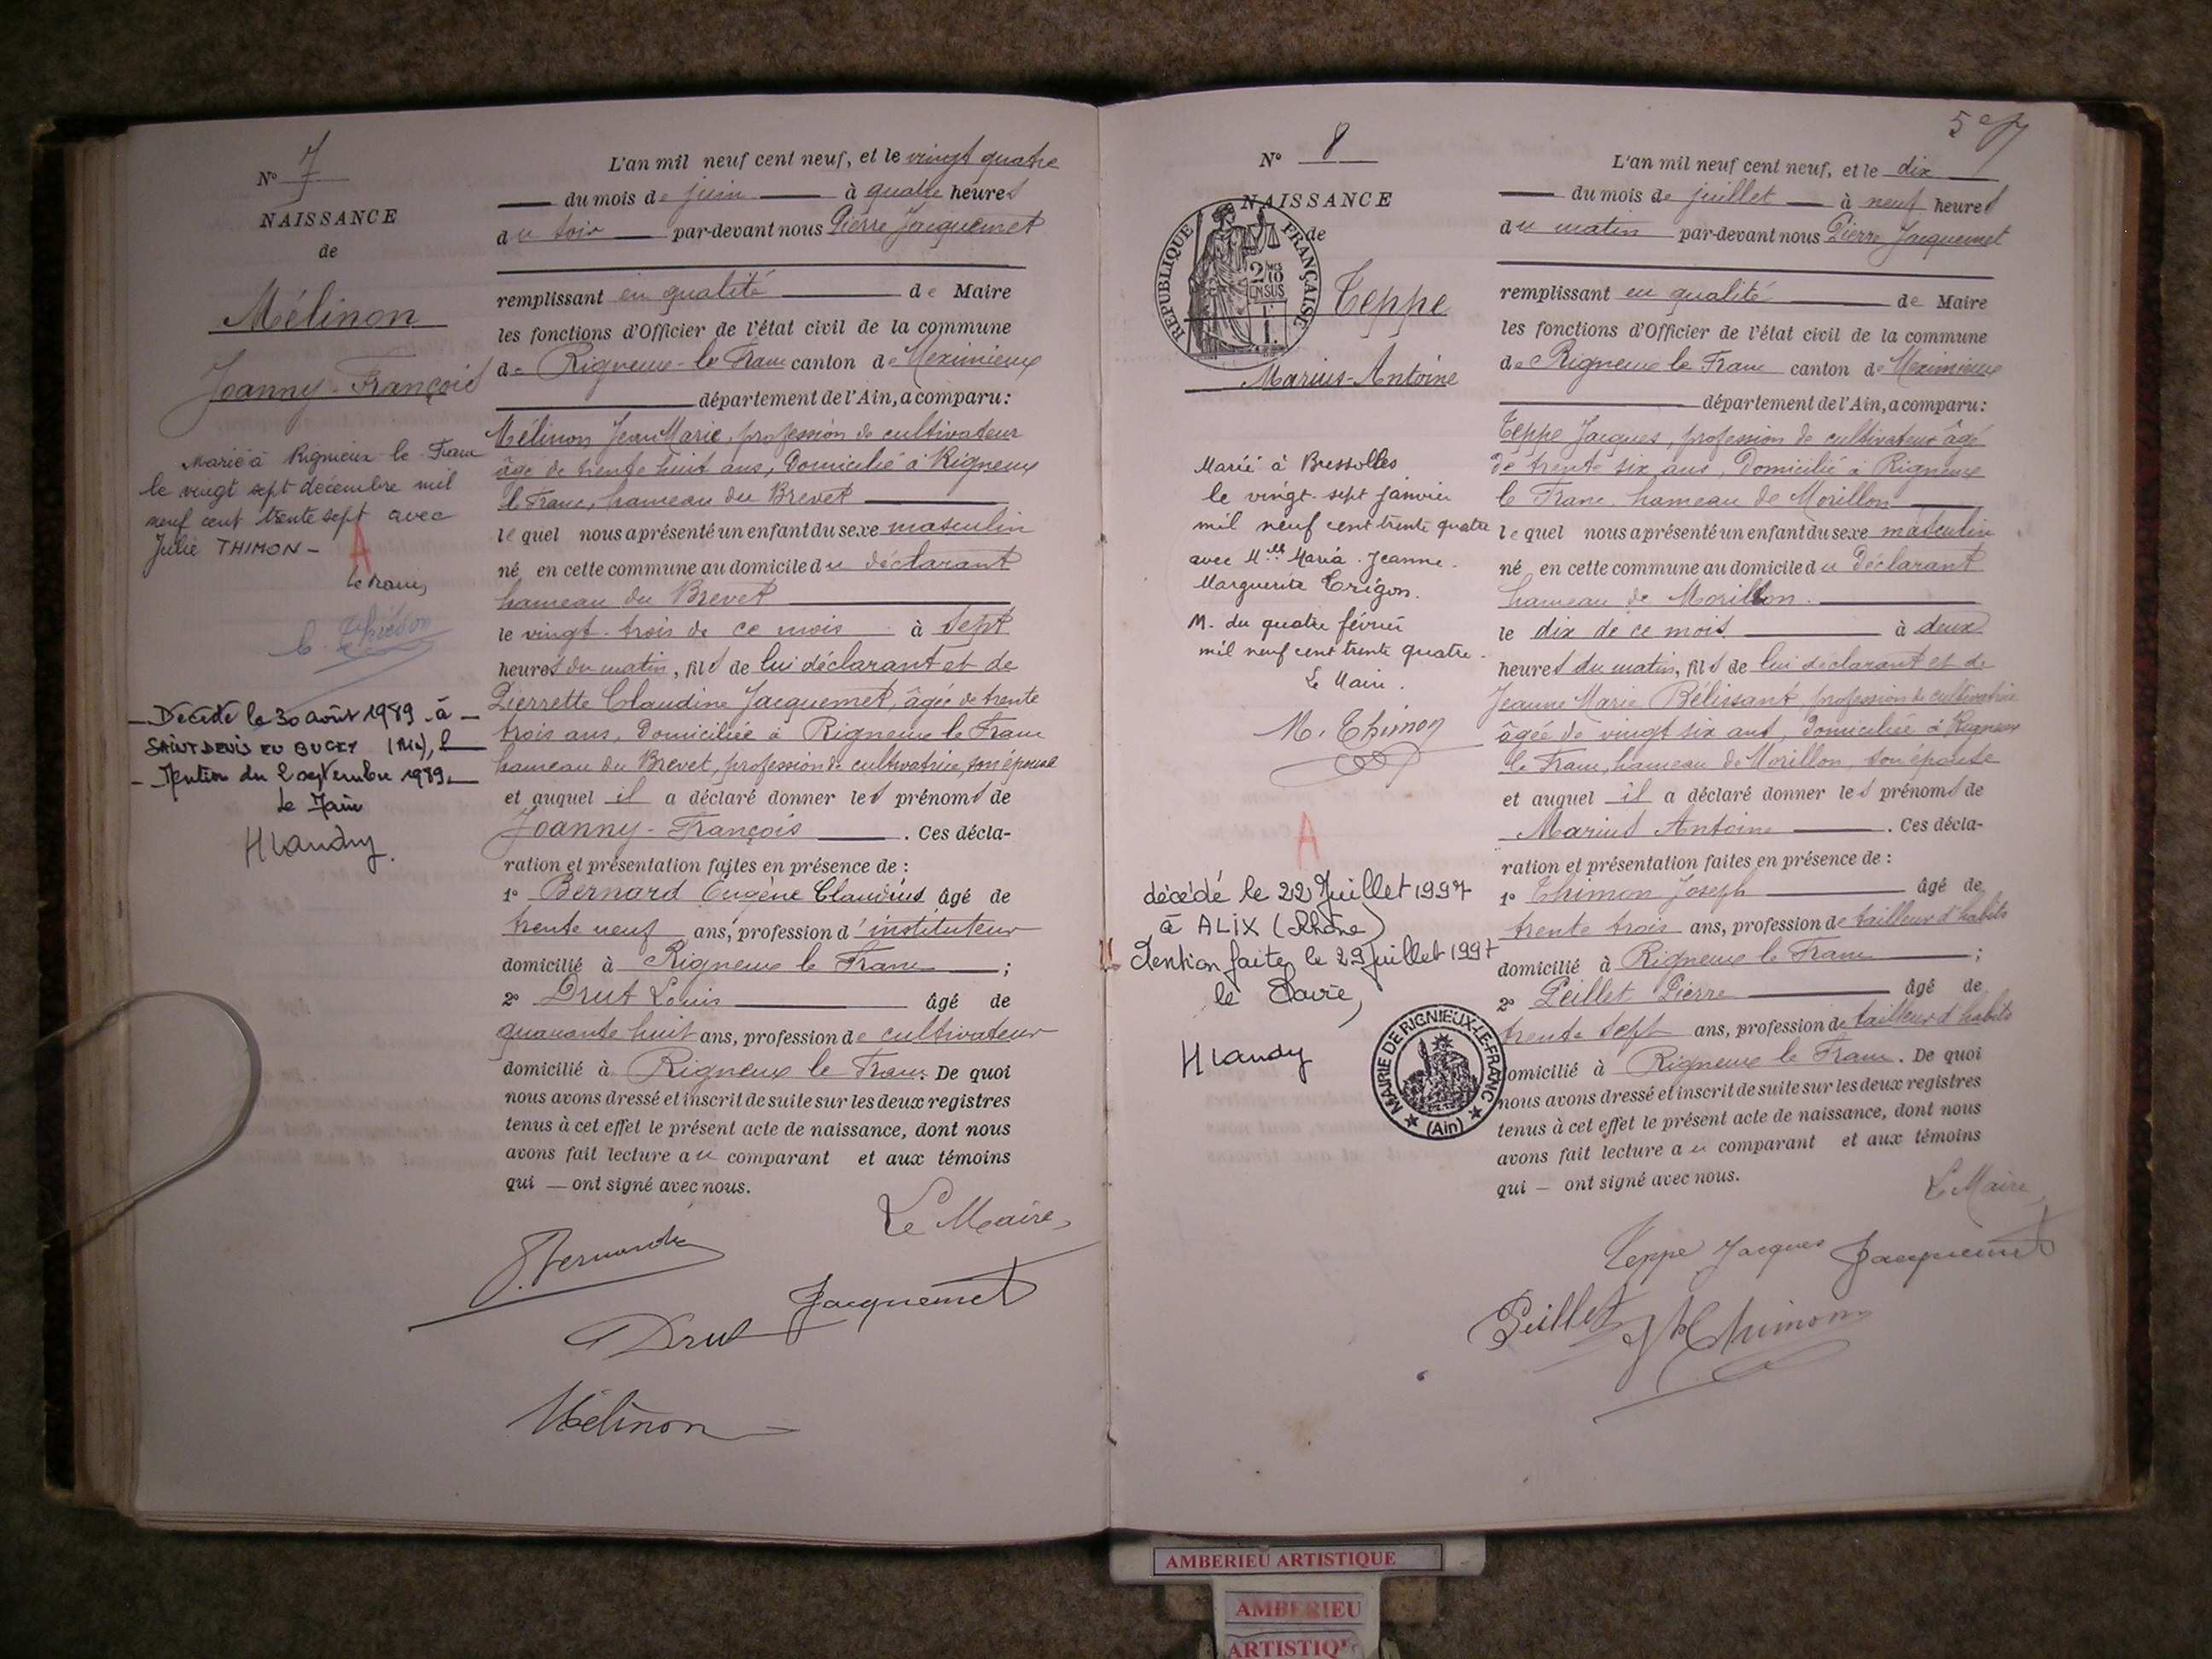 N° 7
NAISSANCE
de
Mélinon
Joanny-François
Marié à Rignieux le Franc
le vingt sept décembre mil
neuf cent trente sept avec
Julie THIMON -
A
Le Maire,
Décédé le 30 août 1989 - à -
SAINT DENIS EN BUGEY (Ain),
- Mention du 2 septembre 1989
Le Maire
HLandry.
L'an mil neuf cent neuf, et le vingt quatre
du mois de juin à quatre heures
du soir par-devant nous Pierre Jacquemet
remplissant en qualité de Maire
les fonctions d'Officier de l'état civil de la commune
de Rigneux-le Franc canton de Meximieux
département de l'Ain, a comparu:
Mélinon, Jean Marie, profession de cultivateur
âgé de trente huit ans, domicilié à Rigneux
le Franc, hameau du Brevet
lequel nous a présenté un enfant du sexe masculin
né en cette commune au domicile du déclarant
hameau du Brevet
le vingt-trois de ce mois à sept
heures du matin, fils de lui déclarant et de
Pierrette Claudine Jacquemet, âgée de trente
trois ans, domiciliée à Rigneux le Franc
hameau du Brevet, profession de cultivatrice, son épouse
et auquel il a déclaré donner les prénoms de
Joanny-François. Ces décla-
ration et présentation faites en présence de :
1° Bernard Eugène Claudius âgé de
trente neuf ans, profession d'instituteur
domicilié à Rigneux le Franc ;
2° Drut Louis âgé de
quarante huit ans, profession de cultivateur
domicilié à Rigneux le Franc. De quoi
nous avons dressé et inscrit de suite sur les deux registres
tenus à cet effet le présent acte de naissance, dont nous
avons fait lecture au comparant et aux témoins
qui — ont signé avec nous.
Le Maire,
Jacquemet
Drut
Mélinon
5e
N° 8
NAISSANCE
de
REPUBLIQUE FRANÇAISE
2/10
EN SUS
Teppe
Marius-Antoine
Marié à Bressolles
le vingt-sept janvier
mil neuf cent trente quatre
avec Melle Maria-Jeanne-
Marguerite Trigon.
M. du quatre février
mil neuf cent trente quatre.
Le Maire.
M. Thimon
A
décédé le 22 Juillet 1997
à ALIX (Rhône)
Mention faite le 29 juillet 1997
le Maire,
HLandry
MAIRIE DE RIGNIEUX-LE-FRANC
(Ain)
L'an mil neuf cent neuf, et le dix
du mois de juillet à neuf heures
du matin par-devant nous Pierre Jacquemet
remplissant en qualité de Maire
les fonctions d'Officier de l'état civil de la commune
de Rigneux le Franc canton de Meximieux
département de l'Ain, a comparu:
Teppe Jacques, profession de cultivateur âgé
de trente six ans, domicilié à Rigneux
le Franc, hameau de Morillon
lequel nous a présenté un enfant du sexe masculin
né en cette commune au domicile du déclarant
hameau de Morillon.
le dix de ce mois à deux
heures du matin, fils de lui déclarant et de
Jeanne Marie Bélissant profession de cultivatrice
âgée de vingt six ans, domiciliée à Rigneux
le Franc, hameau de Morillon, son épouse
et auquel il a déclaré donner les prénoms de
Marius Antoine. Ces décla-
ration et présentation faites en présence de :
1° Thimon Joseph âgé de
trente trois ans, profession de tailleur d'habits
domicilié à Rigneux le Franc ;
2° Peillet Pierre âgé de
trente sept ans, profession de tailleur d'habits
domicilié à Rigneux le Franc. De quoi
nous avons dressé et inscrit de suite sur les deux registres
tenus à cet effet le présent acte de naissance, dont nous
avons fait lecture au comparant et aux témoins
qui — ont signé avec nous.
Le Maire,
Teppe Jacques Jacquemet
Peillet Thimon
AMBERIEU ARTISTIQUE
AMBERIEU
ARTISTIQ